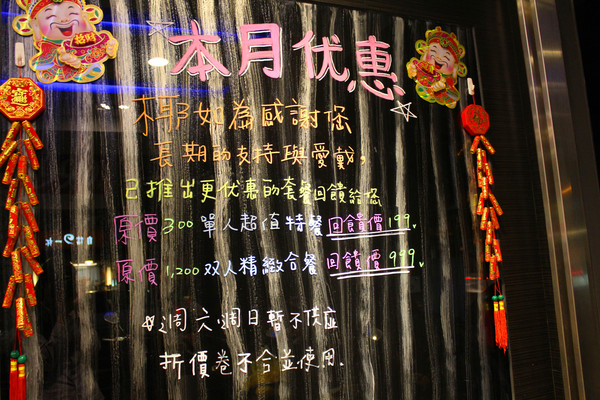 本月优惠
椰如為感謝您
長期的支持與愛戴，
已推出更优惠的套餐回饋給您
原價300單人超值特餐回饋價199.
原價1,200双人精緻合餐回饋價999.
週六週日暫不供应
折價卷不合並使用.